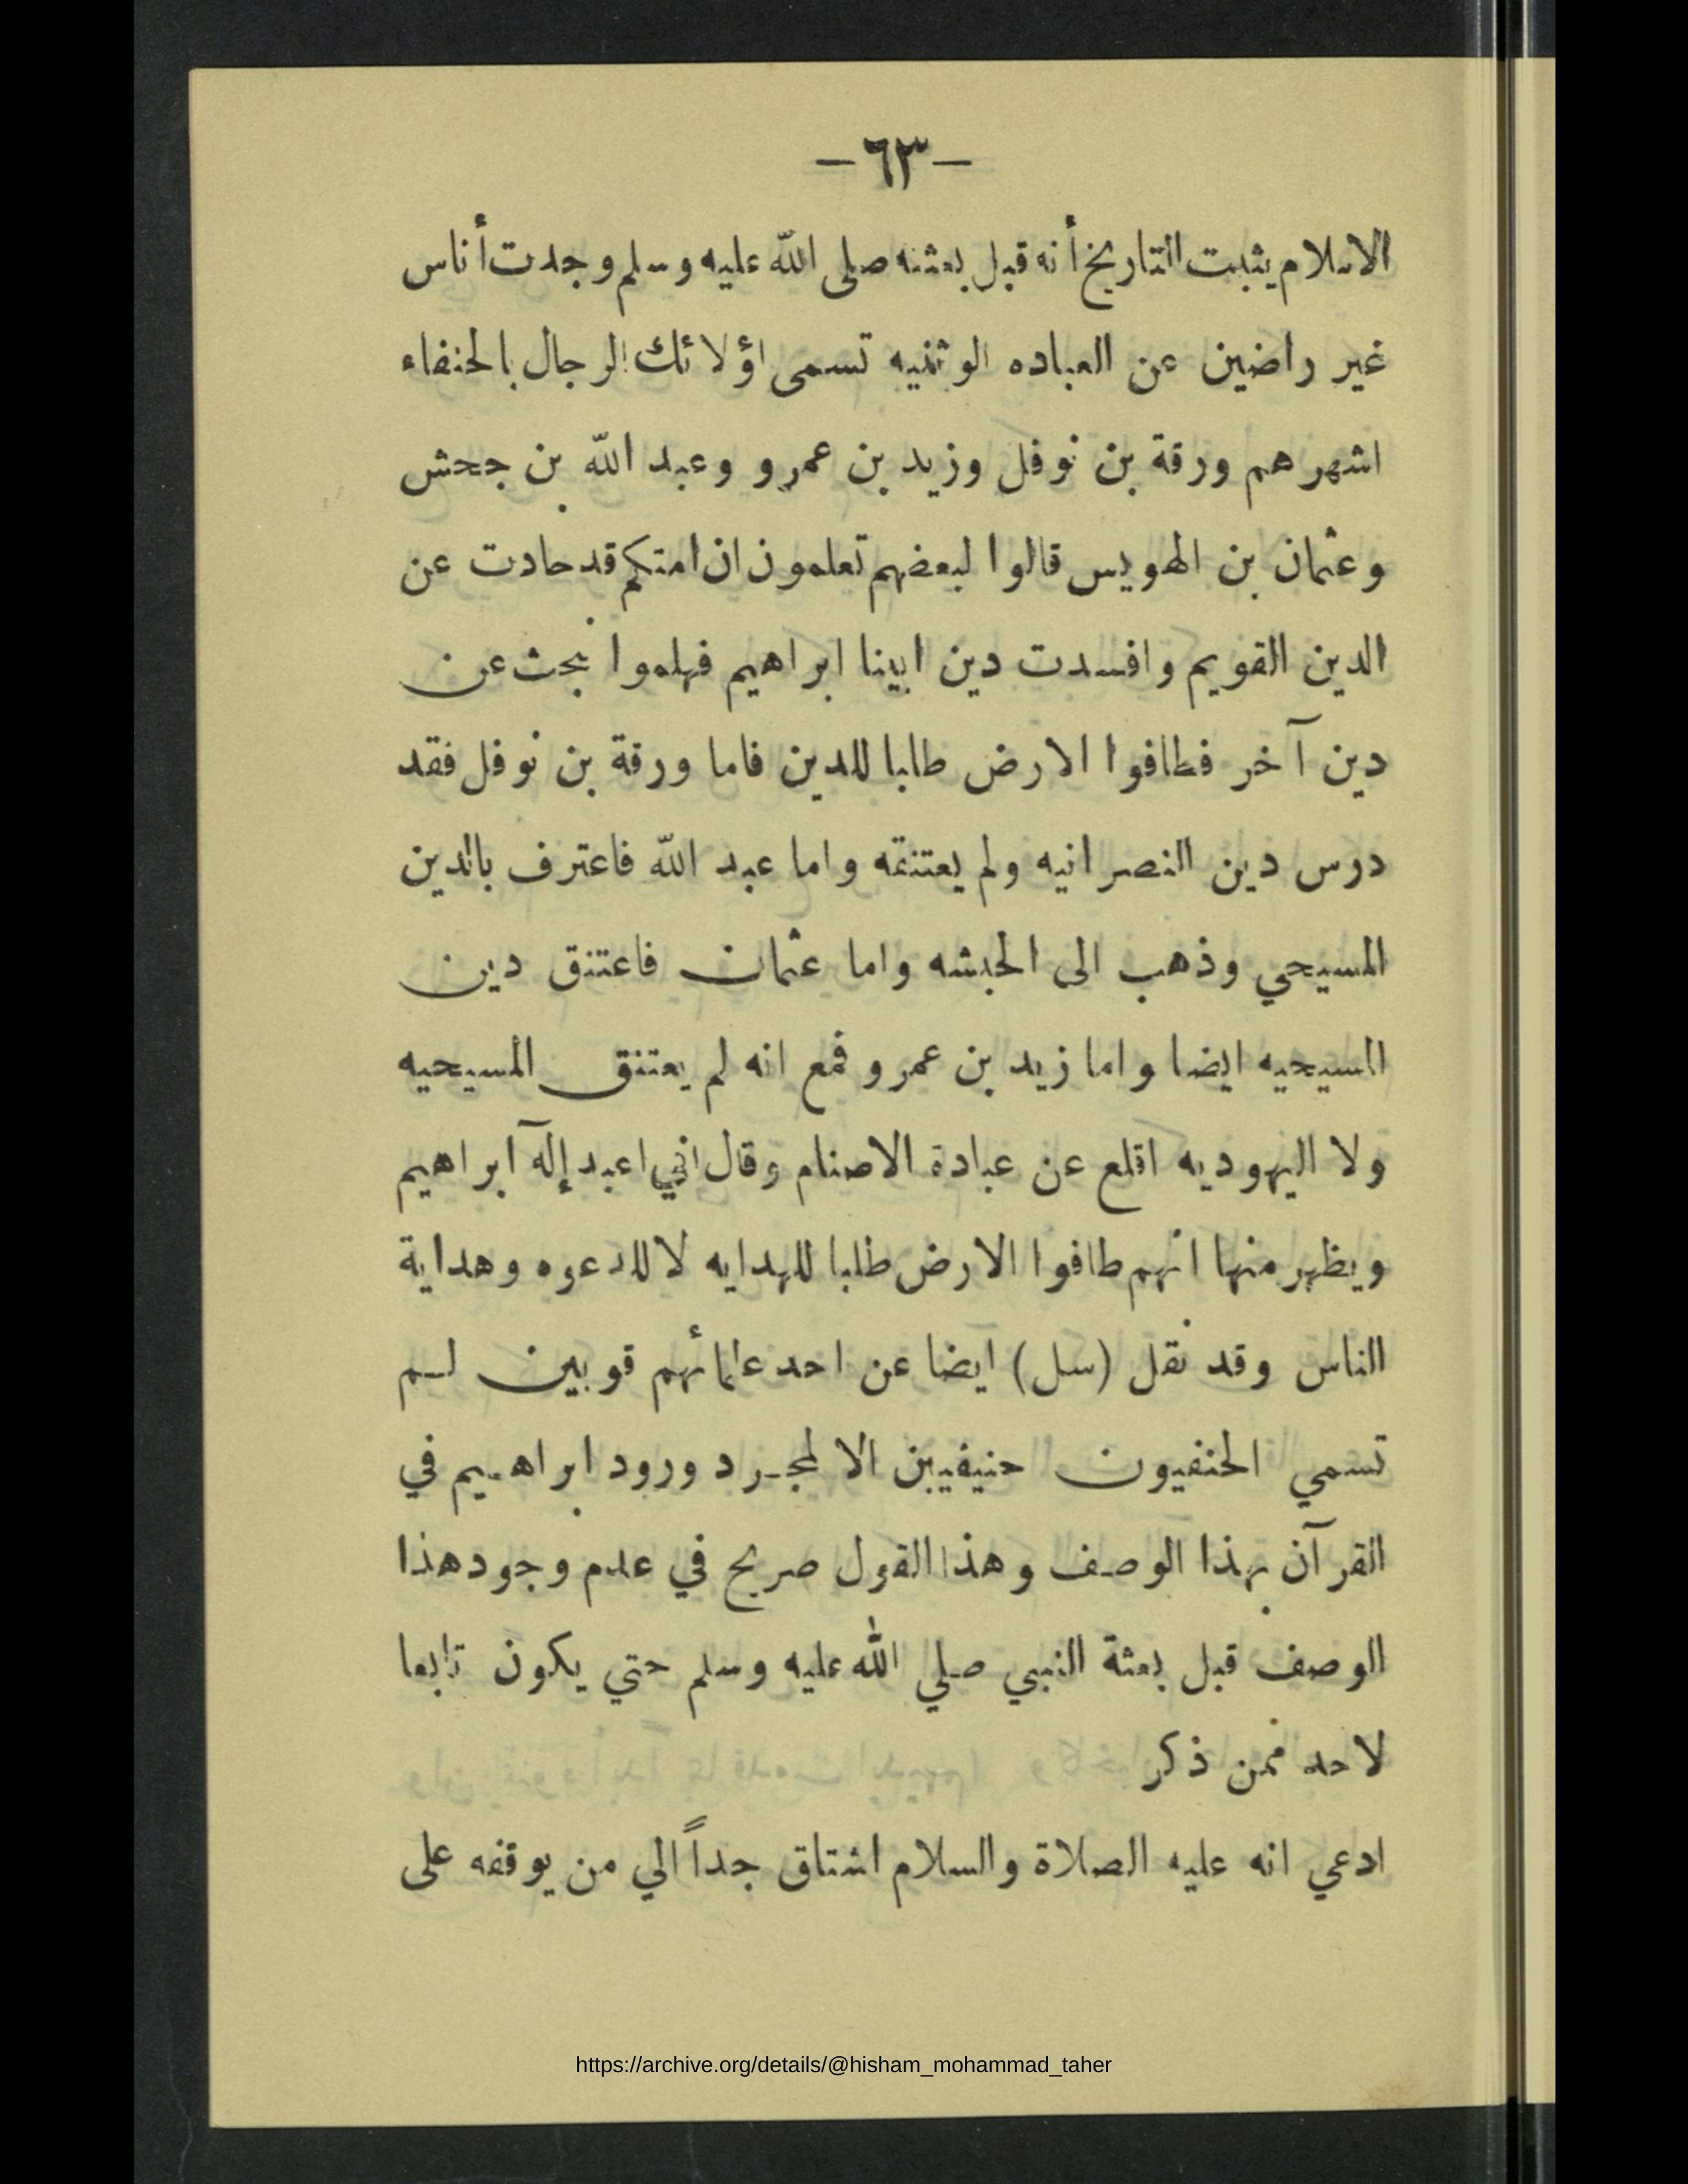 -٦٣-
الاسلام يثبت التاريخ أنه قبل بعثته صلى الله عليه وسلم وجدت أناس
غير راضين عن العباده الوثنيه تسمى اؤلائك الرجال بالحنفاء
اشهرهم ورقة بن نوفل وزيد بن عمرو وعبد الله بن جحش
وعثمان بن الهويس قالوا لبعضهم تعلمون ان امتكم قد حادت عن
الدين القويم وافسدت دين ابينا ابراهيم فهلموا نبحث عن
دين آخر فطافوا الارض طالبا للدين فاما ورقة بن نوفل فقد
درس دين النصرانيه ولم يعتنقه واما عبد الله فاعترف بالدين
المسيحي وذهب الى الحبشه واما عثمان فاعتنق دين
المسيحيه ايضا واما زيد بن عمرو فمع انه لم يعتنق المسيحيه
ولا اليهوديه اقلع عن عبادة الاصنام وقال اني اعبد إلآه ابراهيم
ويظهر منها انهم طافوا الارض طلبا للهدايه لا للدعوه وهداية
الناس وقد نقل (سل) ايضا عن احد علمائهم قوبين لم
تسمي الحنفيون حنيفيين الا لمجرد ورود ابراهيم في
القرآن بهذا الوصف وهذا القول صريح في عدم وجود هذا
الوصف قبل بعثة النبي صلي الله عليه وسلم حتي يكون تابعا
لاحد ممن ذكر
ادعي انه عليه الصلاة والسلام اشتاق جداً الي من يوقفه على
https://archive.org/details/@hisham_mohammad_taher